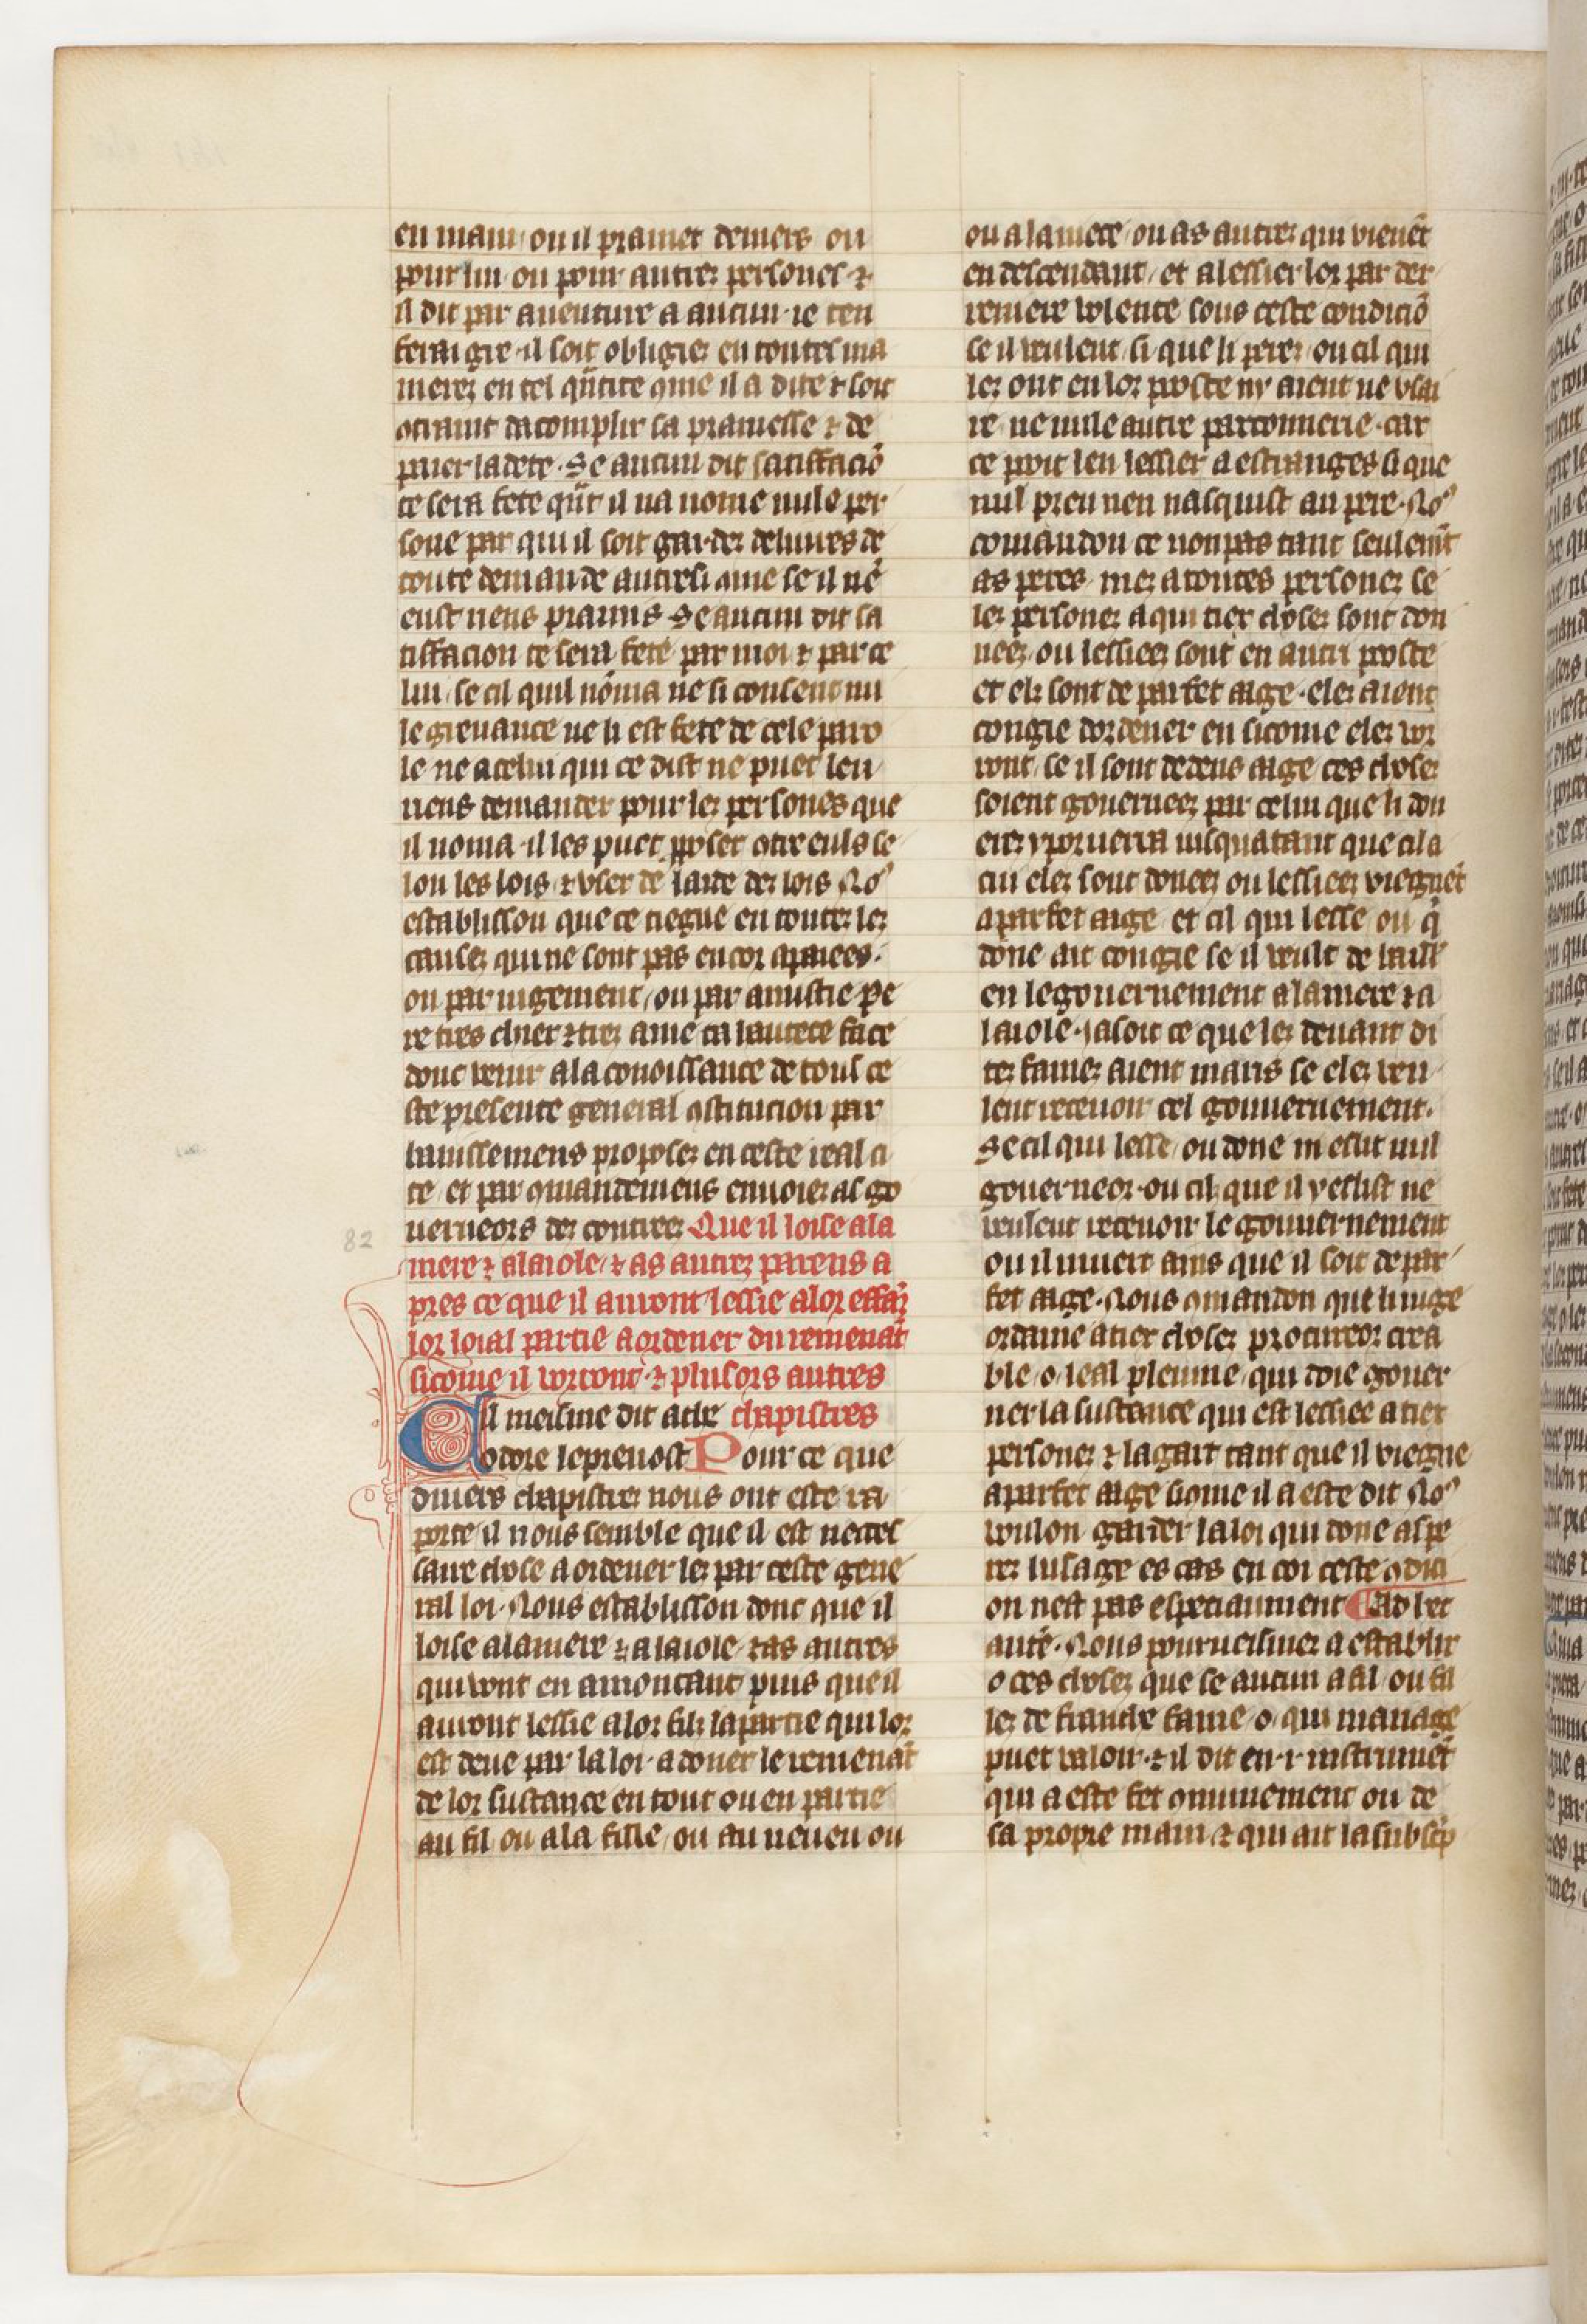 en main ou il pramet deniers ou
pour lui ou pour autrez persones ⁊
il dit par auenture a aucun ie ten
ferai gre il soit obligiez en toutes ma
nierez en tel q̃ntite 9me il a dite ⁊ soit
9traint dacomplir sa pramesse ⁊ de
paier la dete. Se aucun dit satisfaciõ
te sera fete q̃nt il na nome nule per
sone par qui il soit gardez deliures de
toute demande autresi 9me se il nẽ
eust riens pramis Se aucun dit sa
tisfacion te sera fete par moi ⁊ par ce
lui se cil quil nõma ne si consent nu
le greuance ne li est fete de cele paro
le ne a celui qui ce dist ne puet len
riens demander pour lez persones que
il noma il les puet 9tre euls se
lon les lois ⁊ vser de laide dez lois No9
establisson que ce tiegne en toutez lez
causez qui ne sont pas encor apaiees
ou par iugement ou par amistie Pe
re tres chier ⁊ trez ame ta hautece face
donc venir a la conoissance de tous ce
ste presente general 9stitucion par
banissemens proposez en ceste real ci
te et par 9mandemens enuoiez as go
uerneors dez contreez Que il loise a la
82
mere ⁊ a laiole ⁊ as autrez parens a
pres ce que il auront lessie a lor effãz
lor loial partie a ordener du remenãt
sicome il vorront ⁊ plusors autres
Cil meisme dit a the chapistres
odore le preuost Pour ce que
diuers chapistrez nous ont este ra
porte il nous semble que il est neces
saire chose a ordener lez par ceste gene
ral loi. Nous establisson donc que il
loise a la mere ⁊ a laiole ⁊ as autres
qui vont en amontant puis que il
auront lessie a lor filz la partie qui lor
est deue par la loi a doner le remenãt
de lor sustance en tout ou en partie
au fil ou a la fille ou au neueu ou
ou a la niece ou as autrez qui vienẽt
en descendant et a lessier lor par der
reniere volente sous ceste condiciõ
se il veulent si que li perez ou cil qui
lez ont en lor poste ny aient ne vsai
re ne nule autre parconnerie car
ce poit len lessier a estranges si que
nul preu nen nasquist au pere. No9
comandon ce non pas tant seulemẽt
as peres mez a toutes personez se
lez personez a qui tiex chosez sont don
neez ou lessieez sont en autri poste
et elz sont de parfet aige elez aient
congie dordener en sicome elez vor
ront se il sont dedens aige ces chosez
soient gouerneez par celui que li don
erez y poruerra iusqua tant que cil a
cui elez sont donez ou lessieez viegnẽt
a parfet aige et cil qui lesse ou q̃
done ait congie se il veult de laissr
en le gouernement a la mere ⁊ a
laiole. Ja soit ce que lez deuant di
tez famez aient maris se elez veu
lent receuoir cel gouuernement.
Se cil qui lesse ou done ni eslit nul
gouerneor ou cil que il y eslist ne
veulent receuoir le gouuernement
ou il muert ains que il soit de par
fet aige. Nous 9mandon que li iuge
ordaine a tiex chosez procureor crea
ble o leal pleuine qui doie gouer
ner la sustance qui est lessiee a tiex
personez ⁊ la gart tant que il viegne
a parfet aige sicome il a este dit No9
voulon garder la loi qui done as pe
rez lusage es cas en coi ceste 9dici
on nest pas especiaument
autẽ. Nous pourueismez a establir
o ces chosez que se aucun a fil ou fil
lez de franche fame o qui mariage
puet valoir ⁊ il dit en .i. instrumẽt
qui a este fet 9munement ou de
sa propre main ⁊ qui ait la subscp̃